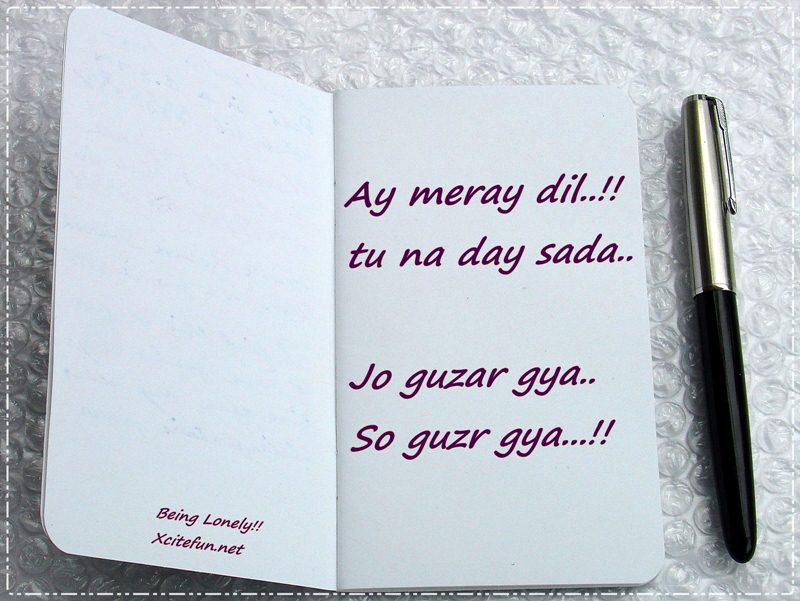 Being Lonely!!
Xcitefun.net
Ay meray dil..!!
tu na day sada..
Jo guzar gya..
So guzr gya...!!